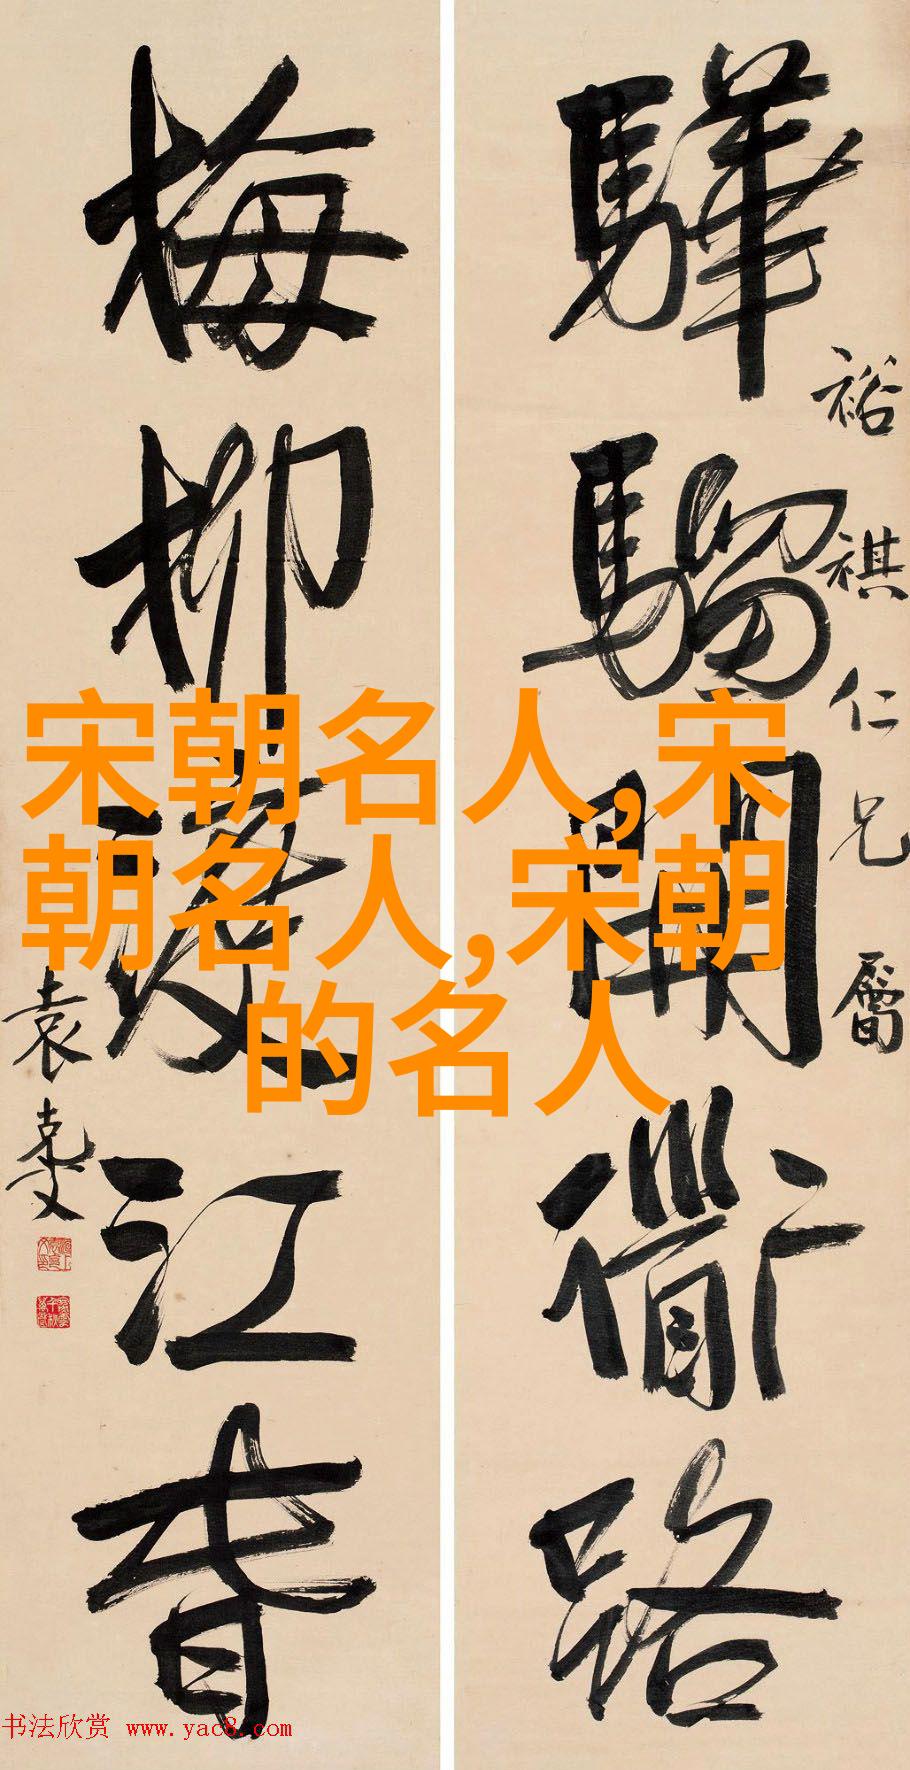 裕祺仁兄屬
驊騮開衜路
梅柳渡江春
袁克文
宋朝名人,宋
朝名人,宋朝
的名人
书法欣赏 www.yac8.com